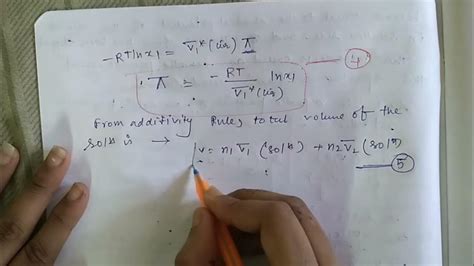 -RT lnx1 = V̄1* (liq) π
④
π = - RT/V̄1*(liq) lnx1
From additivity Rules total volume of the
solⁿ is → V = n1V̄1 (solⁿ) + n2V̄2 (solⁿ)
⑤